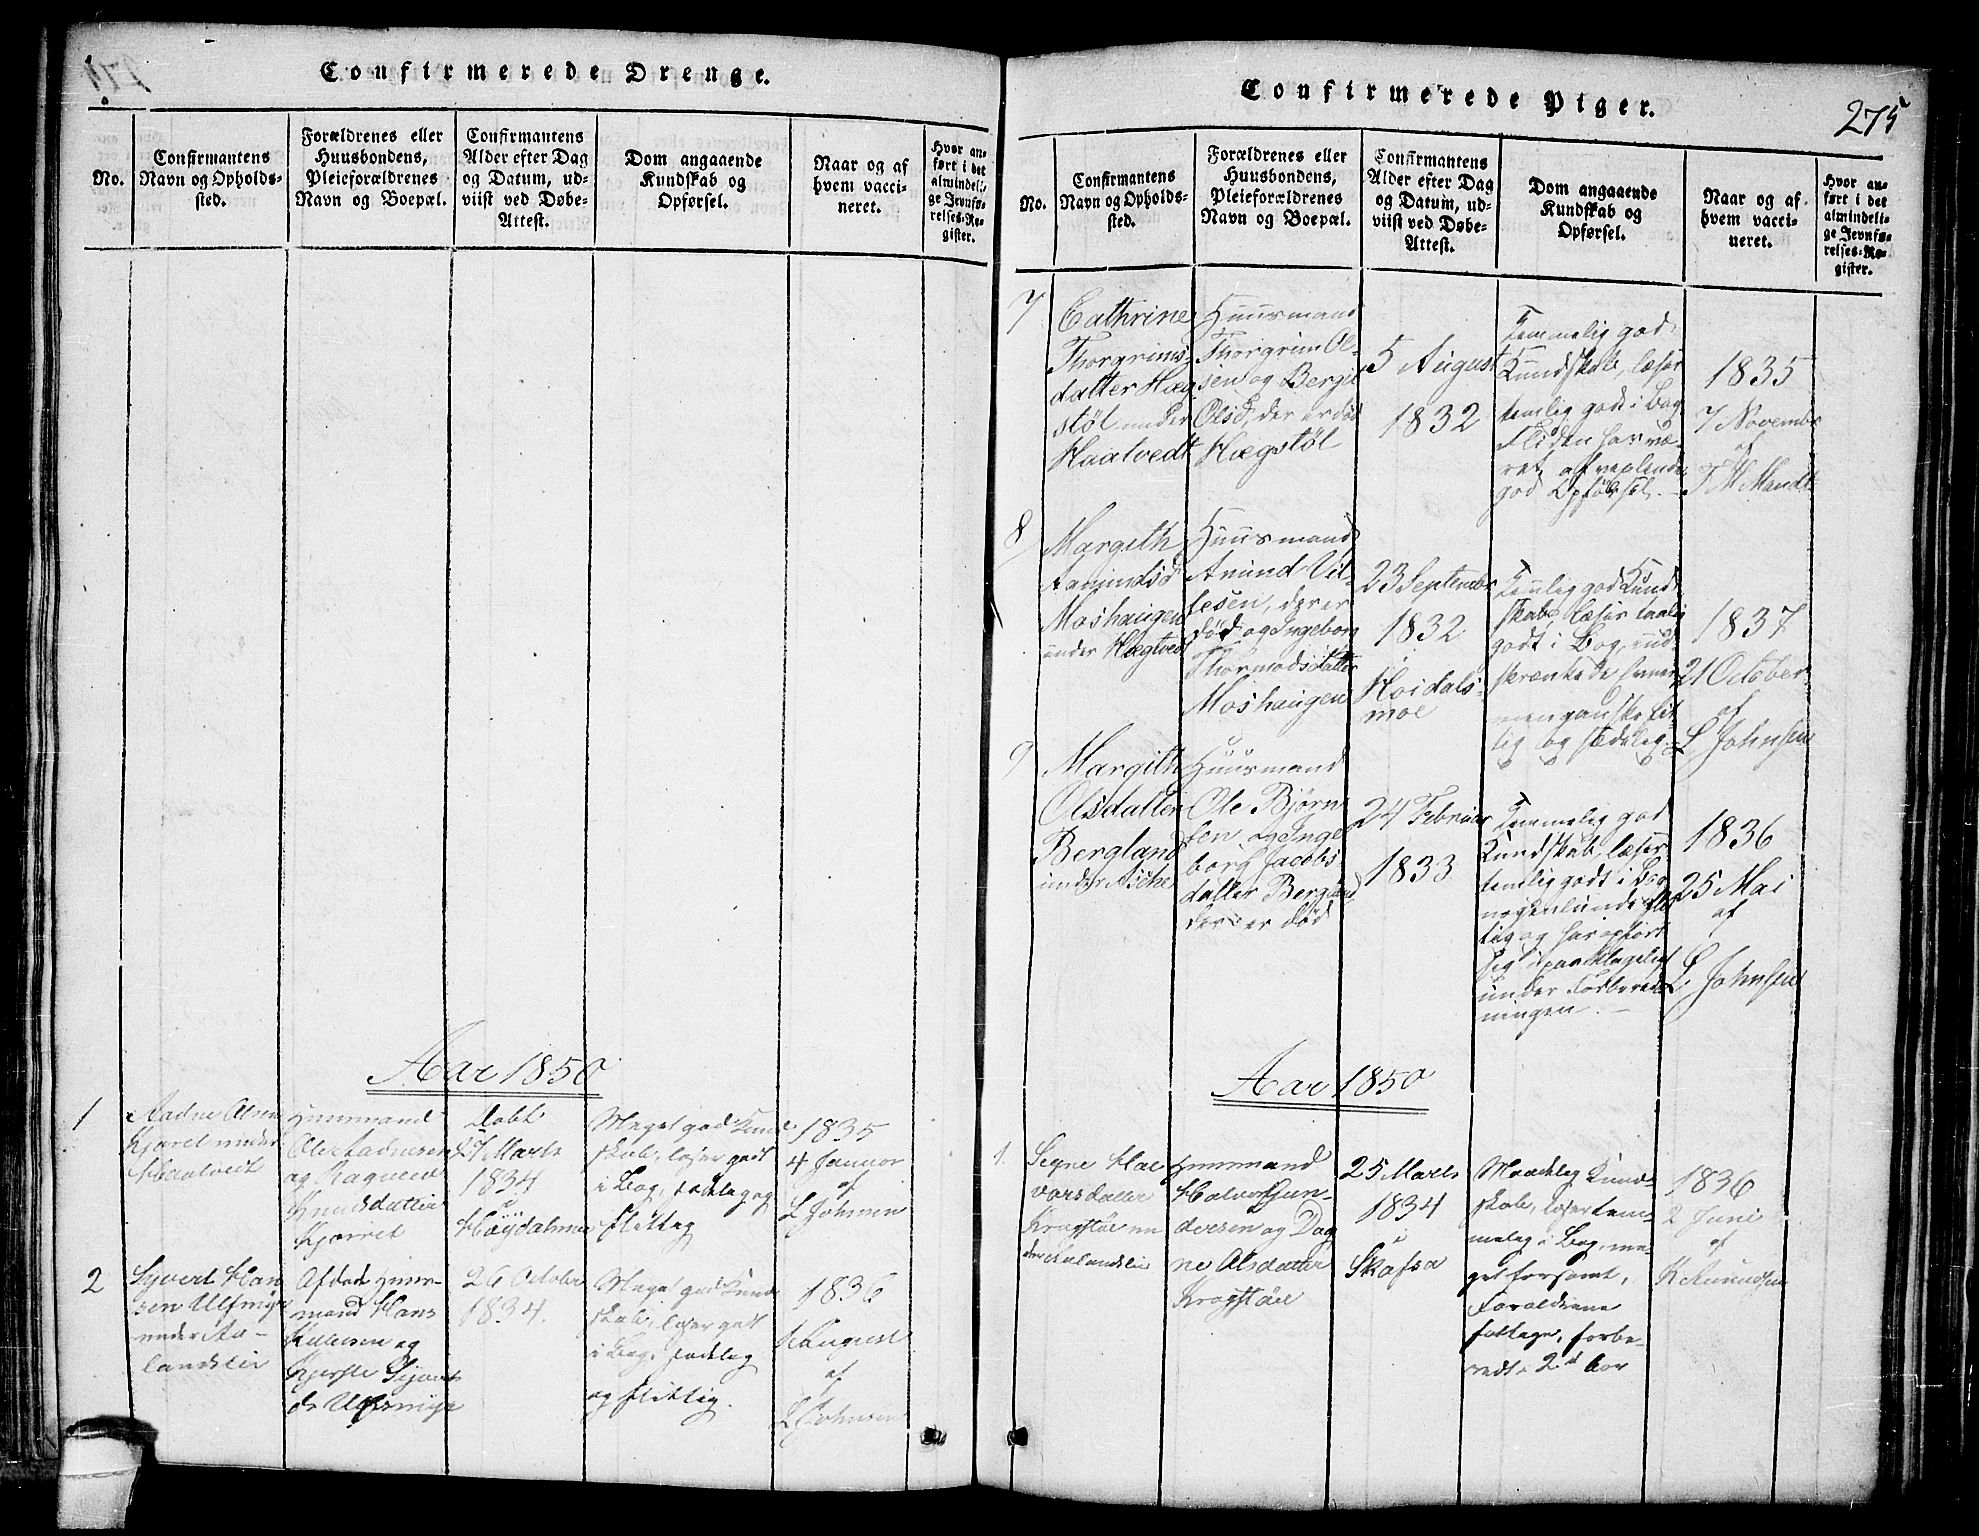 Confirmerede Drenge.
No.
Confirmantens
Navn og Opholds-
sted.
Forældrenes eller
Huusbondens,
Pleieforældrenes
Navn og Boepæl.
Confirmantens
Alder efter Dag
og Datum, ud-
viist ved Døbe-
Attest.
Dom angaaende
Kundskab og
Opførsel.
Naar og af
hvem vacci-
neret.
Hvor an-
ført i det
almindeli-
ge Jevnfø-
relses-Re-
gister.
Aar 1850
1
Aadne Olsen
Kjæret under
Haatvedt
Huusmand
Ole Aadnesen
og Ragnild
Knudsdatter
Kjærret
Døbt
27 Marts
1834
i
Høydalsmoe
Meget god Kund
skab, læser godt
i Bog, sædelig og
flittig
1835
4 Januar
af
L Johnsen
2
Syvert Han
sen Ulfsmyr
under Aa-
landslii
Afdøde Huus-
mand Hans
og
Kjersti Syverts
dr Ulfsmyr
26 October
1834.
Meget god Kund
skab, læser godt
i Bog, sædelig
og flittig.
1836
August
af
L Johnsen
Confirmerede Piger.
275
No.
Confirmantens
Navn og Opholds-
sted.
Forældrenes eller
Huusbondens,
Pleieforældrenes
Navn og Boepæl.
Confirmantens
Alder efter Dag
og Datum, ud-
viist ved Døbe-
Attest.
Dom angaaende
Kundskab og
Opførsel.
Naar og af
hvem vacci-
neret.
Hvor an-
ført i det
almindeli-
ge Jevnfø-
relses-Re-
gister.
7
Cathrine
Thorgrims-
datter Hæg
støl under
Haatvedt
Huusmand
Thorgrim Ol-
sen og Bergit
Olsd, der er død
Hægstøl
5 August
1832
Temmelig god
Kundskab, læser
temlig godt i Bog
Fliden har væ-
ret afvexlende
god Opførsel.
1835
7 Novembr
af
T M Mandt
8
Margith
Aanundsd
Moshaugen
under Hægtvedt
Huusmand
Anund Vet-
lesen, der er
død og Ingeborg
Thormodsdatter
Moshaugen
23 Septembr
1832
i
Hoidals-
moe
Temlig god Kund
skab, læser taalig
godt i Bog, ind
skrænkede Evner
men ganske flit
tig og sædelig.
1837
21 October
af
L Johnsen
9
Margith
Olsdatter
Bergland
under
Huusmand
Ole Bjørn
sen og Inge
borg Jacobs
datter Bergland
der er død
24 Februar
1833
Temmelig god
Kundskab, læser
temlig godt i Bog
nogenlunde flit
tig og har opført
sig upaaklageligt
under Forberede
ningen.
1836
25 Mai
af
L Johnsen
Aar 1850
1.
Signe Hal
vorsdatter
Krogstøil un
der Aalandslii
Huusmand
Halvor Gun-
dersen og Dag
ne Olsdatter
Krogstøil
25 Marts
1834
i
Skafsa
Maadelig Kund
skab, læser tem-
melig i Bog, me-
get forsømt,
Forældrene
fattige, forbe-
redt i 2de Aar
1836
2 Juni
af
K Aanundsen